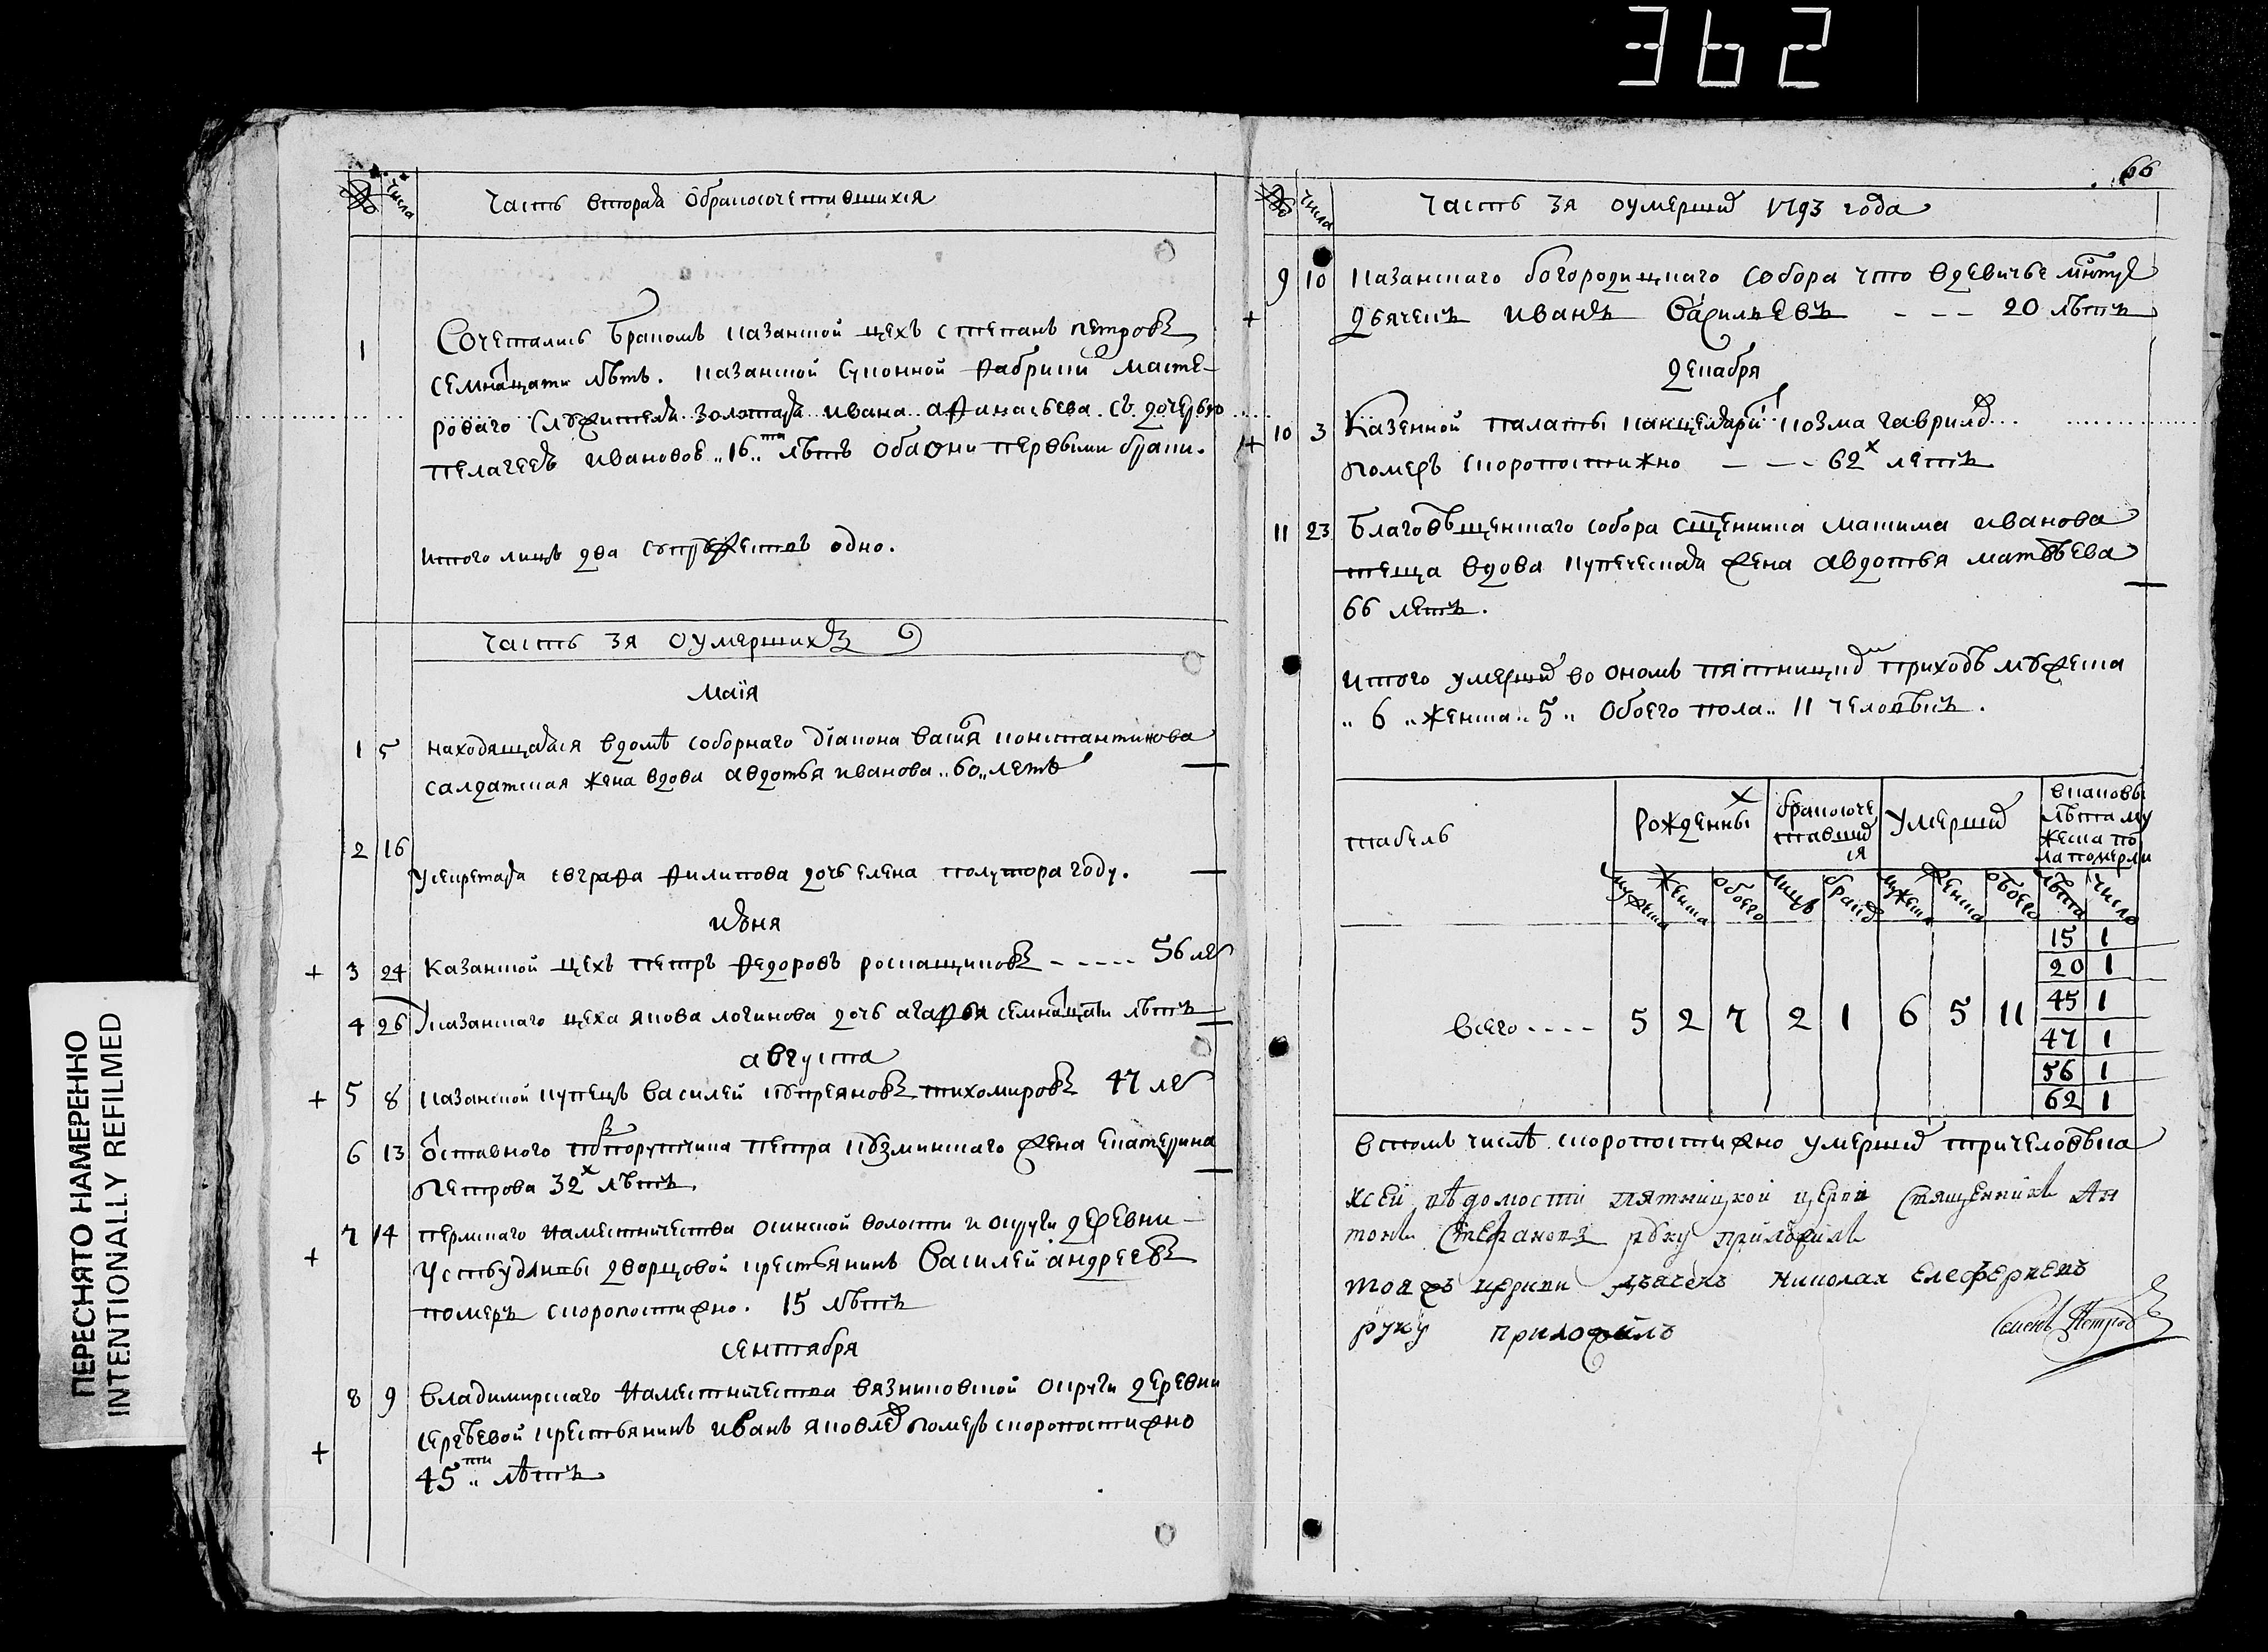 362
ПЕРЕСНЯТО НАМЕРЕННО
INTENTIONALLY REFILMED
№ числа
Часть вторая обракосочетавшихся
1
Сочетались бракомъ казанской цехъ степанъ петровъ
семнатцати лѣтъ. казанской суконной фабрики масте-
роваго служителя золотаря ивана афинасьева съ дочерью
пелагеею ивановою 16ти лѣтъ оба они первыми браки.
итого лицъ два супружествъ одно.
Часть 3я оумершихъ
маїя
1 5 находящаяся вдомѣ соборнаго діакона васил константинова
салдатская жена вдова авдотья иванова 60 летъ
2 16
у секретаря евграфа филипова дочь елена полутора году.
июня
+ 3 24 Казанской цехъ петръ федоровъ роспащиковъ - - - - 56 ле
4 26 казанскаго цеха якова логинова дочь агафья семнатцати лѣтъ
августа
+ 5 8 казанской купецъ василей купреяновъ тихомировъ 47 ле
6 13 отставного подпорутчика петра кузминскаго жена екатерина
петрова 32х лѣтъ.
7 14 пермскаго наместничества осинской волости и округи деревни
+ устьбудкипы дворцовой крестьянинъ василей андреевъ
померъ скоропостижно. 15 лѣтъ
сентября
8 9 владимирскаго наместничества вязниковской округи деревни
сергѣевой крестьянинъ иванъ яковле померъ скоропостижно
+ 45ти лѣтъ
66
№ числа
Часть 3я оумерши 1793 года
9 10 казанскаго богородицкаго собора что вдевичье мнтре
+ дьячекъ иванъ васильевъ - - - 20 лѣтъ
декабря
+ 10 3 Казенной палаты канцеляри козма гаврило
померъ скоропостижно - - - 62х летъ
11 23 Благовѣщенскаго собора сщенника максима иванова
теща вдова купеческая жена авдотья матвѣева
66 летъ.
итого умерши во ономъ пятницко приходѣ мужеска
6 женска 5 обоего пола 11 человѣкъ.
табель
рожденны
бракосоче
тавши
ся
умерши
вкаковы
лѣта му
жеска по
ла померли
мужеска женска обоего лицъ брако мужеска женска обоего лѣта число
всего - - - - 5 2 7 2 1 6 5 11
15 1
20 1
45 1
47 1
56 1
62 1
втомъ числѣ скоропостижно умерши три человѣка
ксей вѣдомости пятницкой церкви священникъ Ан
тонъ Стефановъ руку приложилъ
тояжъ церкви дьячекъ николаи елефериевъ
руку приложилъ
Семенъ Петров